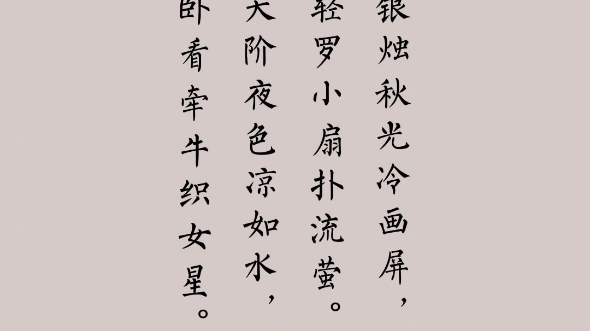 银烛秋光冷画屏，
轻罗小扇扑流萤。
天阶夜色凉如水，
卧看牵牛织女星。